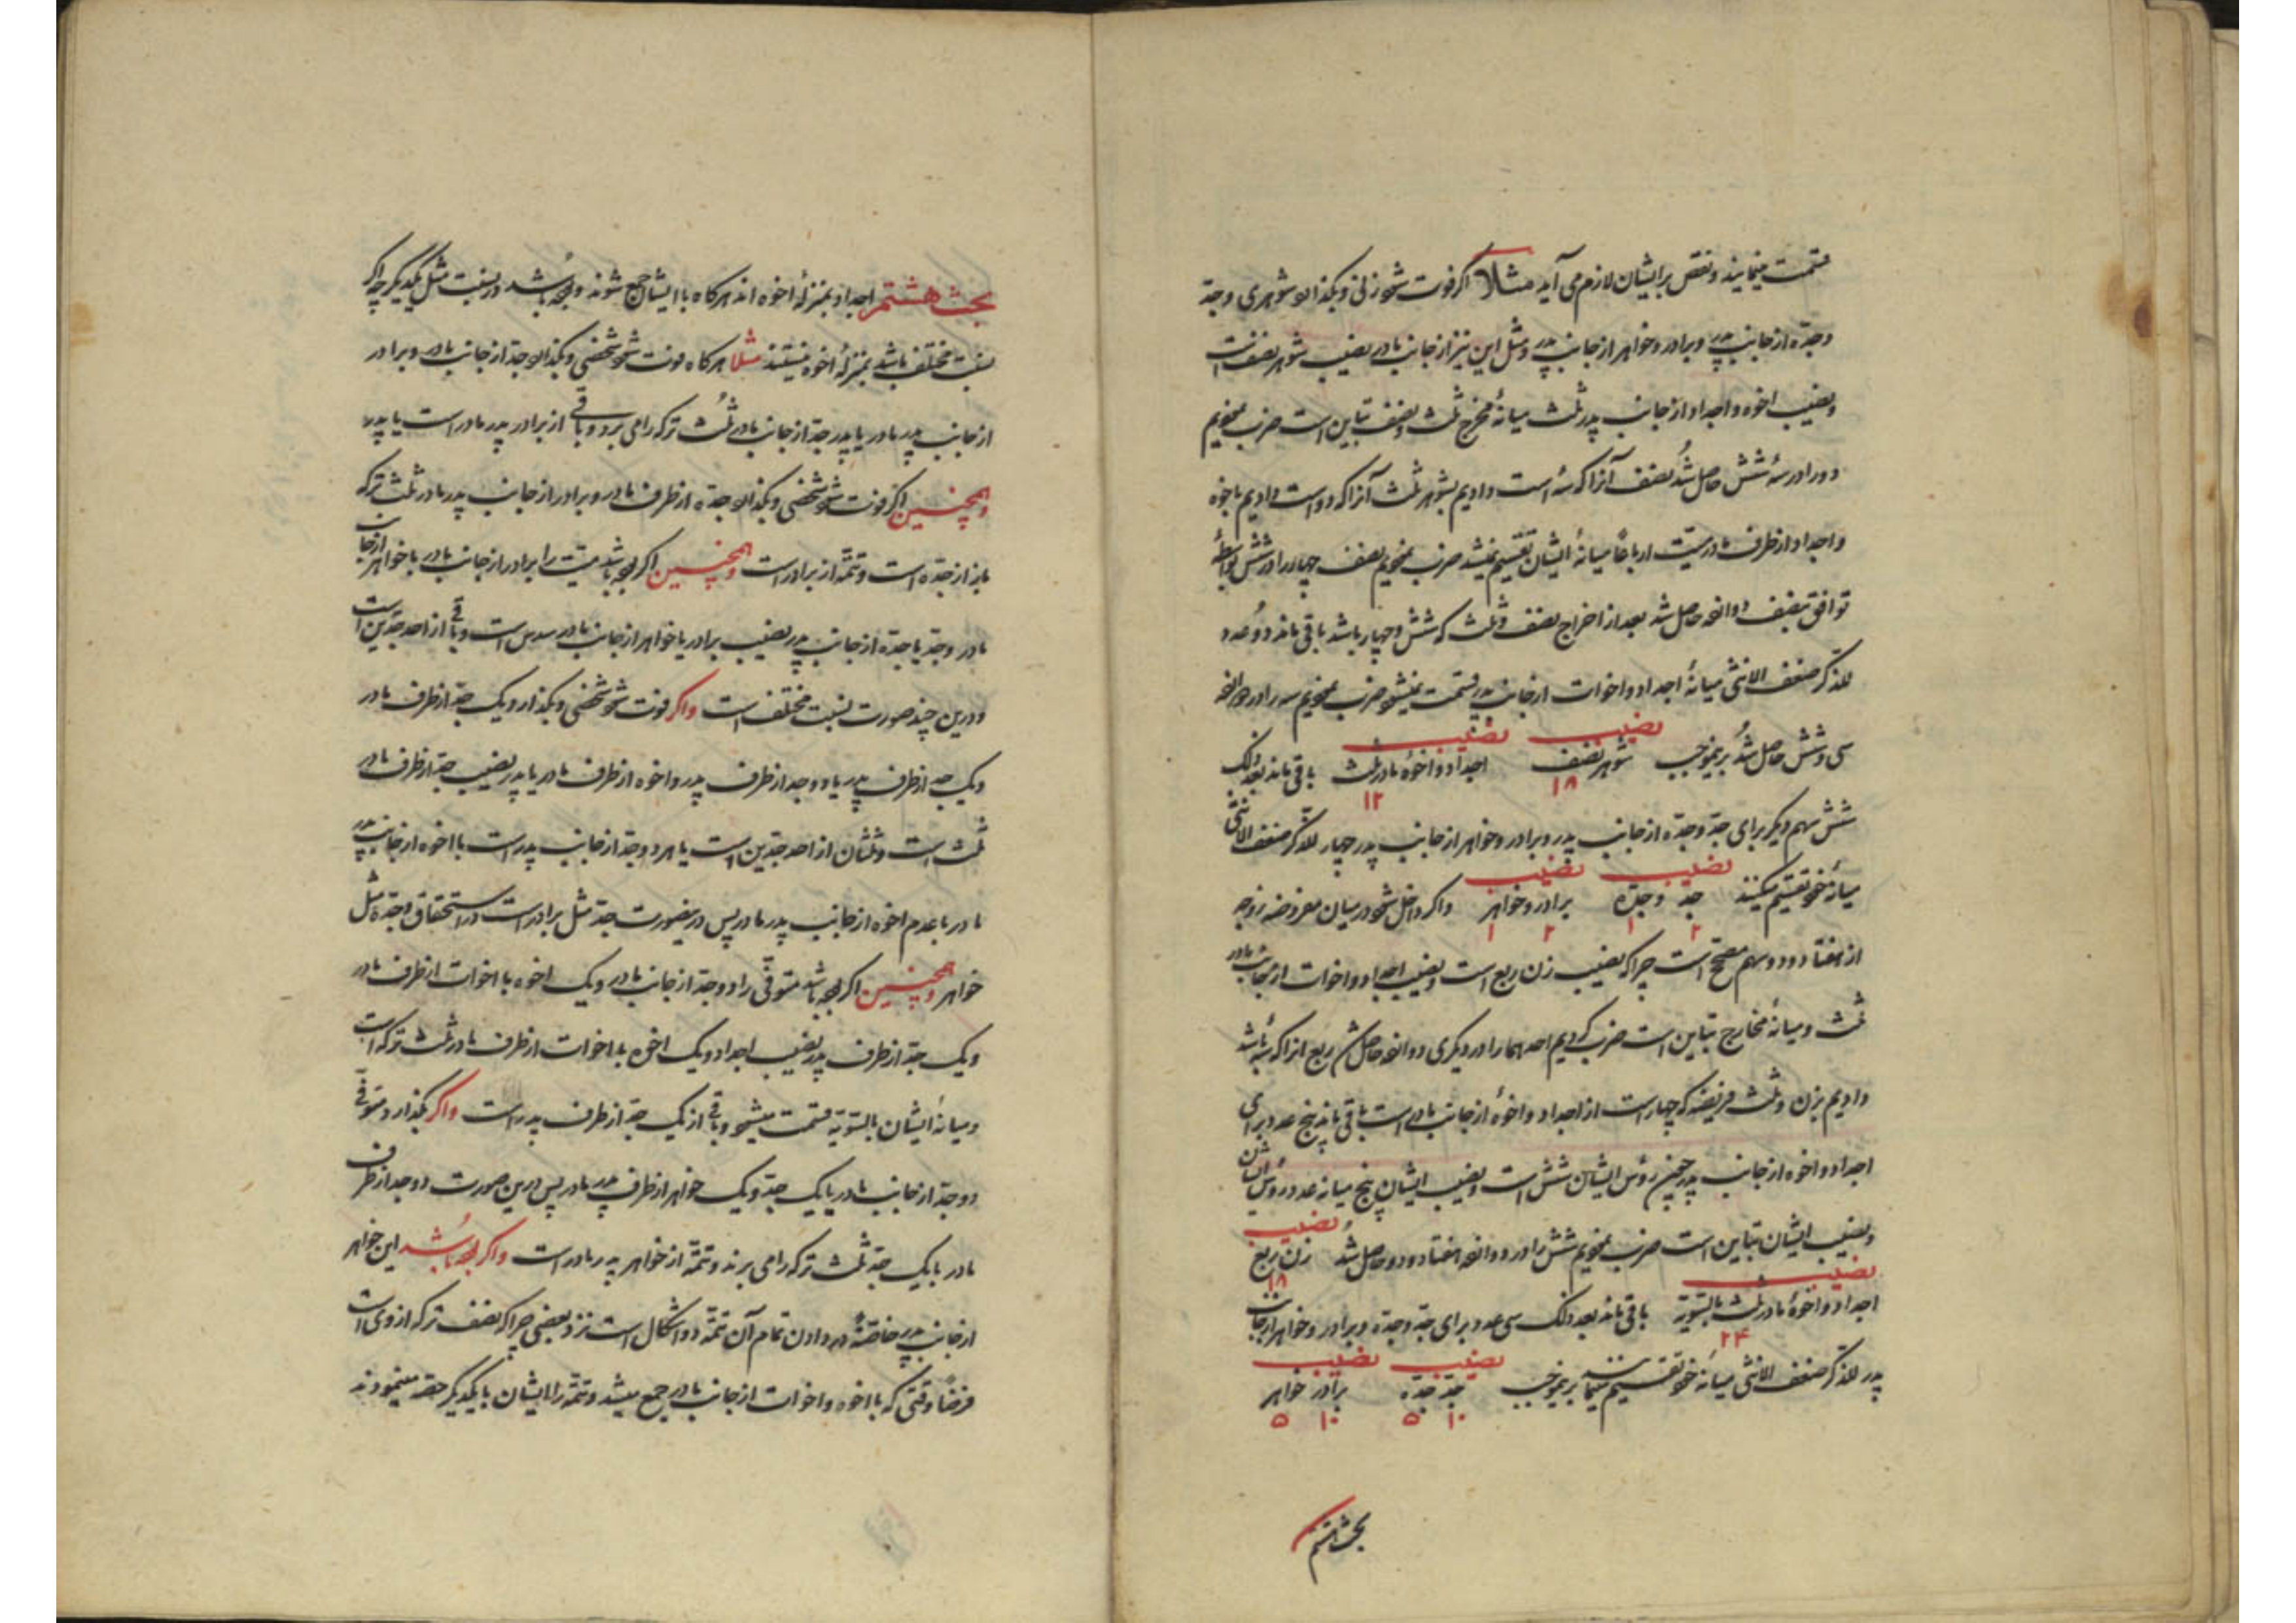 قسمت مینمایند و نقص بر ایشان لازم می آید مثلا اگر فوت شود زنی و بگذارد شوهری و جد
و جده از جانب پدر و برادر و خواهر از جانب پدر و مثل این نیز از جانب مادر نصیب شوهر نصف است
و نصیب اخوه و اجداد از جانب پدر ثلث میانهٔ مخرج ثلث و نصف تباین است ضرب نمودیم
دو را در سه شش حاصل شد نصف آنرا که سه است دادیم بشوهر ثلث آنرا که دو است دادیم باخوه
و اجداد از طرف مادر میت ارباعا میانهٔ ایشان تقسیم نمیشد ضرب نمودیم نصف چهار را در شش بواسطهٔ
توافق بنصف دوازده حاصل شد بعد از اخراج نصف و ثلث که شش و چهار باشد باقی ماند دو عدد
للذکر ضعف الانثی میانهٔ اجداد و اخوات از جانب پدر قسمت نمیشود ضرب نمودیم سه را در دوازده
سی و شش حاصل شد بر بموجب نصیب شوهر نصف ۱۸ نصیب اجداد و اخوهٔ مادر ثلث ۱۲ باقی ماند بعد ذلک
شش سهم دیگر برای جد و جده از جانب پدر و برادر و خواهر از جانب پدر چهار للذکر ضعف الانثی
میانهٔ خود تقسیم میکنند نصیب جد و جده ۲ ۱ نصیب برادر و خواهر ۲ ۱ و اگر داخل شود در میان مفروضه زوجه
از هفتاد و دو سهم مصحح است چرا که نصیب زن ربع است و نصیب اجداد و اخوات از جانب مادر
ثلث و میانهٔ مخارج تباین است ضرب کردیم احدهما را در دیگری دوازده حاصل شد ربع انرا که سه باشد
دادیم بزن و ثلث فریضه که چهار است از اجداد و اخوهٔ از جانب مادر است باقی ماند پنج عدد برای
اجداد و اخوه از جانب پدر چون رؤس ایشان شش است و نصیب ایشان پنج میانه عدد رؤس ایشان
و نصیب ایشان تباین است ضرب نمودیم شش را در دوازده هفتاد و دو حاصل شد نصیب زن ربع ۱۸
نصیب اجداد و اخوهٔ مادر ثلث بالسویة ۲۴ باقی ماند بعد ذلک سی عدد برای جد و جده و برادر و خواهر از جانب
پدر للذکر ضعف الانثی میانهٔ خود تقسیم مینمایند بر بموجب نصیب جد جده ۱۰ ۵ نصیب برادر خواهر ۱۰ ۵
بحث هشتم
بحث هشتم اجداد بمنزلهٔ اخوه اند هرگاه با ایشان جمع شوند و بوده باشد در نسبت مثل یکدیگر چرا که اگر
نسبت مختلف باشد بمنزلهٔ اخوه نیستند مثلا هرگاه فوت شود شخصی و بگذارد جد از جانب مادر و برادر
از جانب پدر مادر یا پدر جد از جانب مادر ثلث ترکه را می برد و باقی از برادر پدر مادر است یا پدر
و همچنین اگر فوت شود شخصی و بگذارد جده از طرف مادر و برادر از جانب پدر مادر ثلث ترکه
باز از جده است و تتمه از برادر است و همچنین اگر بوده باشد میت را برادر از جانب مادر یا خواهر از جانب
مادر و جد یا جده از جانب پدر نصیب برادر یا خواهر از جانب مادر سدس است و باقی از احد جدین است
و درین چند صورت نسبت مختلف است و اگر فوت شود شخصی و بگذارد یک جد از طرف مادر
و یک جد از طرف پدر یا دو جد از طرف پدر و اخوه از طرف مادر یا پدر نصیب جد از طرف مادر
ثلث است و ثلثان از احد جدین است یا هر دو جد از جانب پدر است با اخوه از جانب پدر
مادر با عدم اخوه از جانب پدر مادر پس در ینصورت جد مثل برادر است در استحقاق و جده مثل
خواهر و همچنین اگر بوده باشد متوفی را دو جد از جانب مادر و یک اخوه یا اخوات از طرف مادر
و یک جد از طرف پدر نصیب اجداد و یک اخوه یا اخوات از طرف مادر ثلث ترکه است
و میانهٔ ایشان بالسویة قسمت میشود و باقی از یک جد از طرف پدر است و اگر بگذارد متوفی
دو جد از جانب مادر یا یک جد و یک خواهر از طرف پدر مادر پس درین صورت دو جد از طرف
مادر یا یک جد ثلث ترکه را می برند و تتمه از خواهر پدر مادر است و اگر بوده باشد این خواهر
از جانب پدر خاصة در دادن تمام آن تتمه دو اشکال است نزد بعضی چرا که نصف ترکه از وی است
فرضا وقتی که با اخوه و اخوات از جانب مادر جمع میشد و تتمه را ایشان با یکدیگر حصه مینمودند